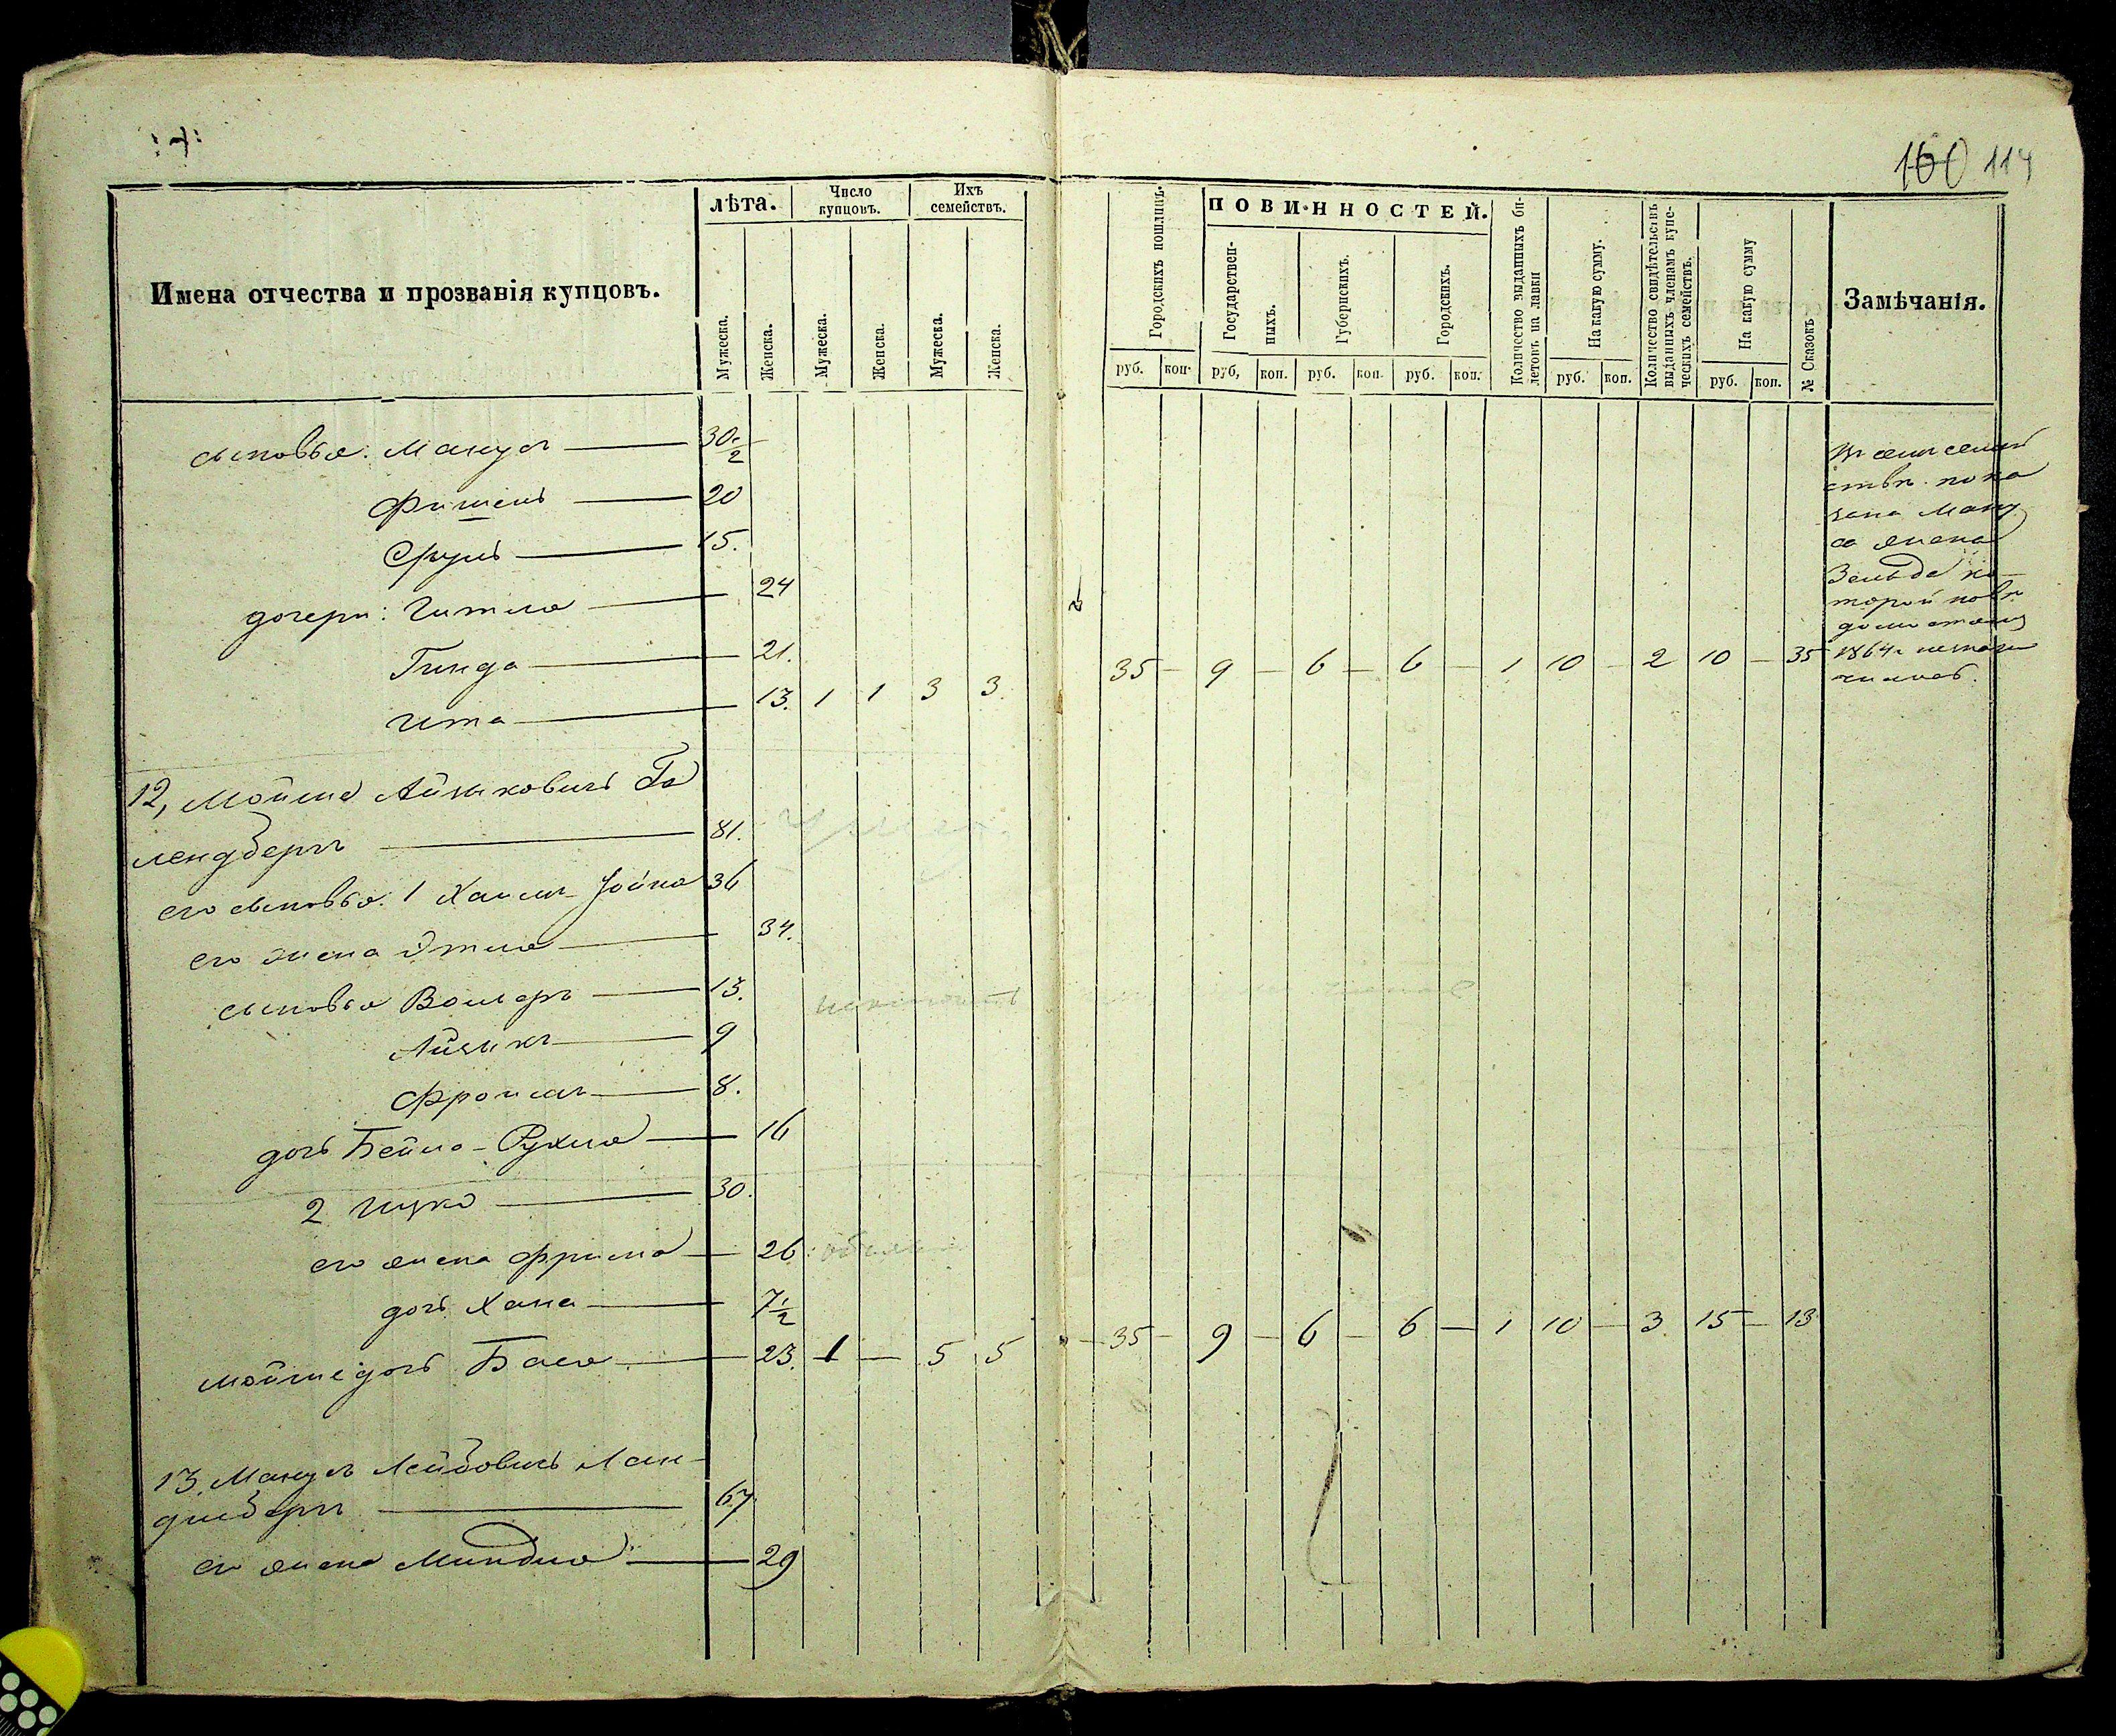 :7:
100 114
Имена отчества и прозванія купцовъ.
лѣта.
Мужеска.
Женска.
Число купцовъ.
Мужеска.
Женска.
Ихъ семействъ.
Мужеска.
Женска.
Городскихъ пошлинъ.
руб. коп.
ПОВИННОСТЕЙ.
Государственныхъ.
руб, коп.
Губернскихъ.
руб. коп.
Городскихъ.
руб. коп.
Количество выданныхъ билетовъ на лавки
На какую сумму.
руб. коп.
Количество свидѣтельствъ выданныхъ членамъ купеческихъ семействъ.
На какую сумму
руб. коп.
№ Сказокъ
Замѣчанія.
сыновья: Манусъ — 30 1/2
Фишель — 20
Сруль — 15.
дочери: Читля — 24
Гинда — 21.
Ита — 13. 1 1 3 3. 35 — 9 — 6 — 6 — 1 10 — 2 10 — 35
семей
ствѣ пока
занаМану
са жена
Зельда ко
торой по
1864
12, Мойше Айзиковичъ Го
лендберъ — 81.
его сыновья: 1 Хаимъ Јойна 36
его жена Этля — 34.
сыновья Волперъ — 13.
Айзикъ — 9
Фроимъ — 8.
дочь Бейла-Рухля — 16
2 Ицко — 30.
его жена Фрима — 26
дочь Хана — 7 1/2
Мойше дочь Бася — 23. 1 — 5 5 — 35 — 9 — 6 — 6 — 1 10 — 3 15 — 13
13. Манусъ Лейбовичъ Лан-
дсберъ — 67.
его жена Миндля — 29